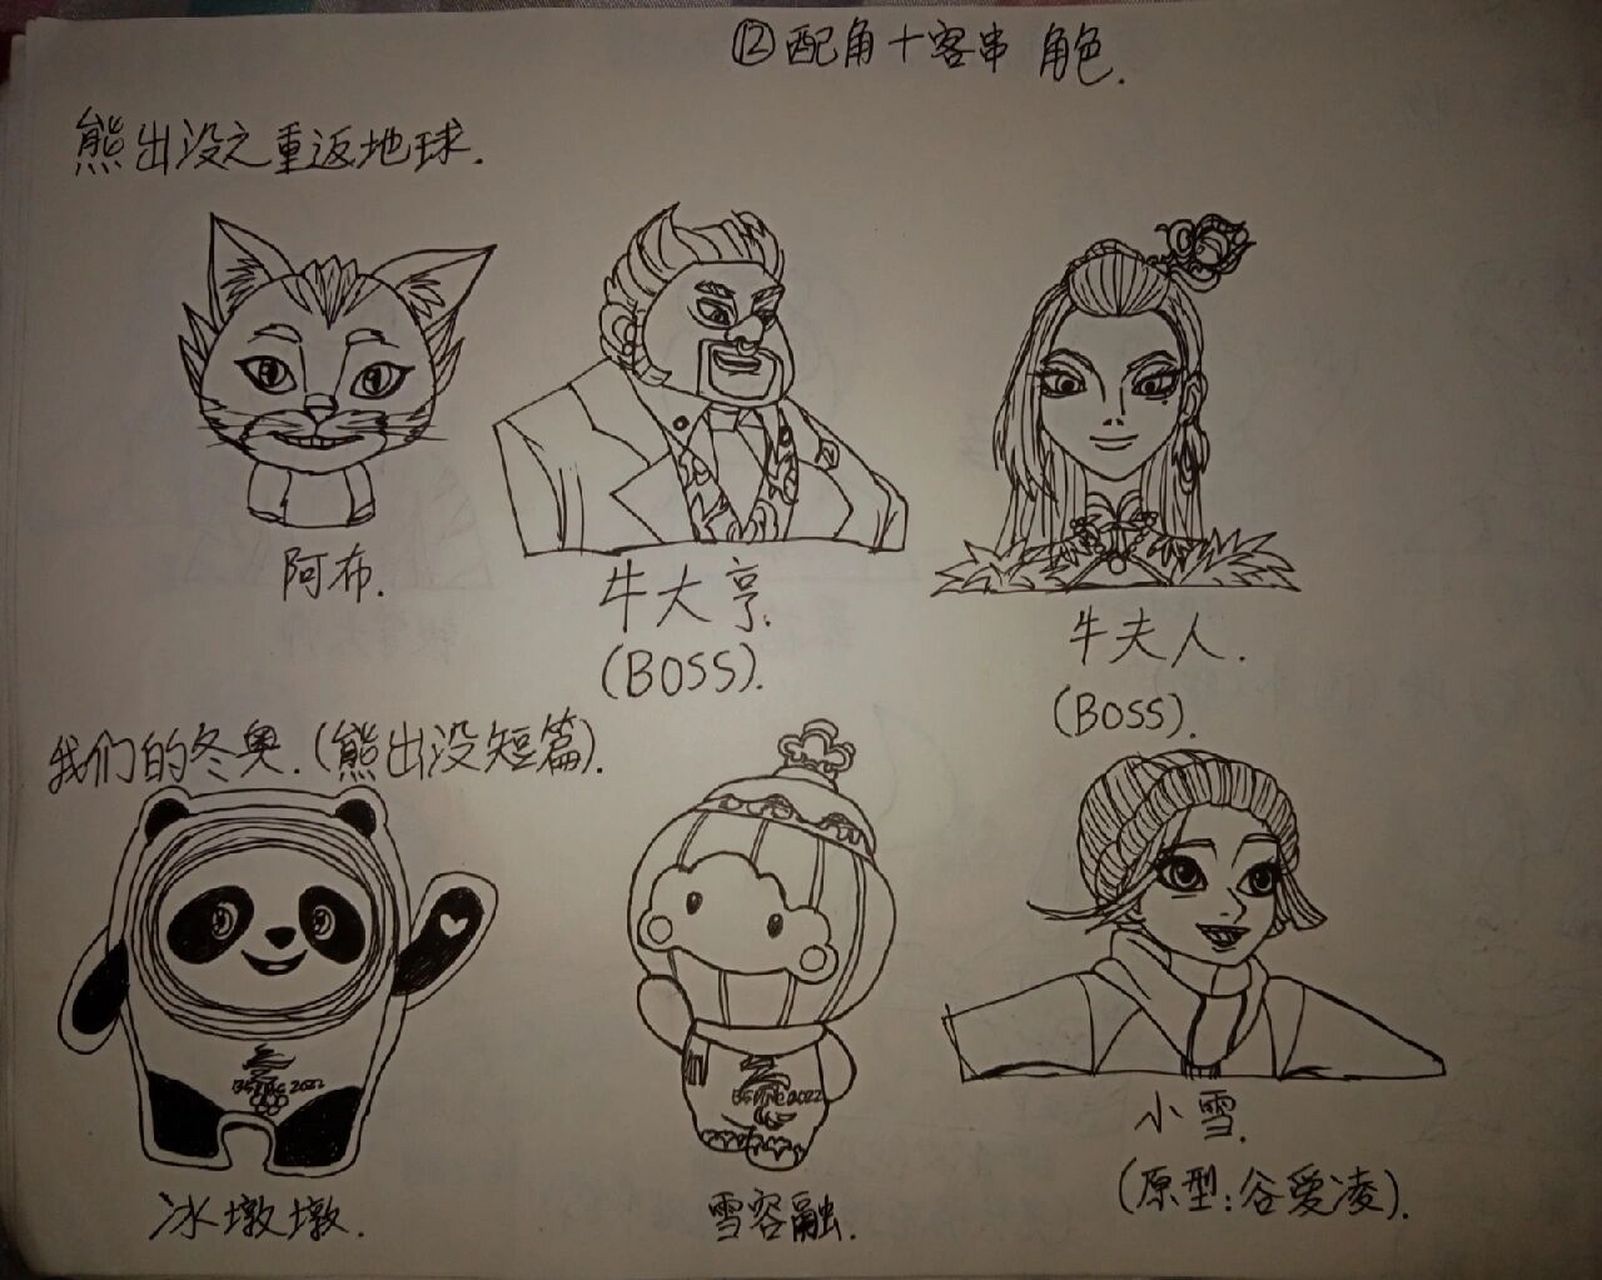 ⑫配角+客串 角色.
熊出没之重返地球.
阿布.
牛大亨.
(BOSS).
牛夫人.
(BOSS).
我们的冬奥.(熊出没短篇).
BEIJING 2022
BEIJING 2022
冰墩墩.
雪容融.
小雪.
(原型:谷爱凌).